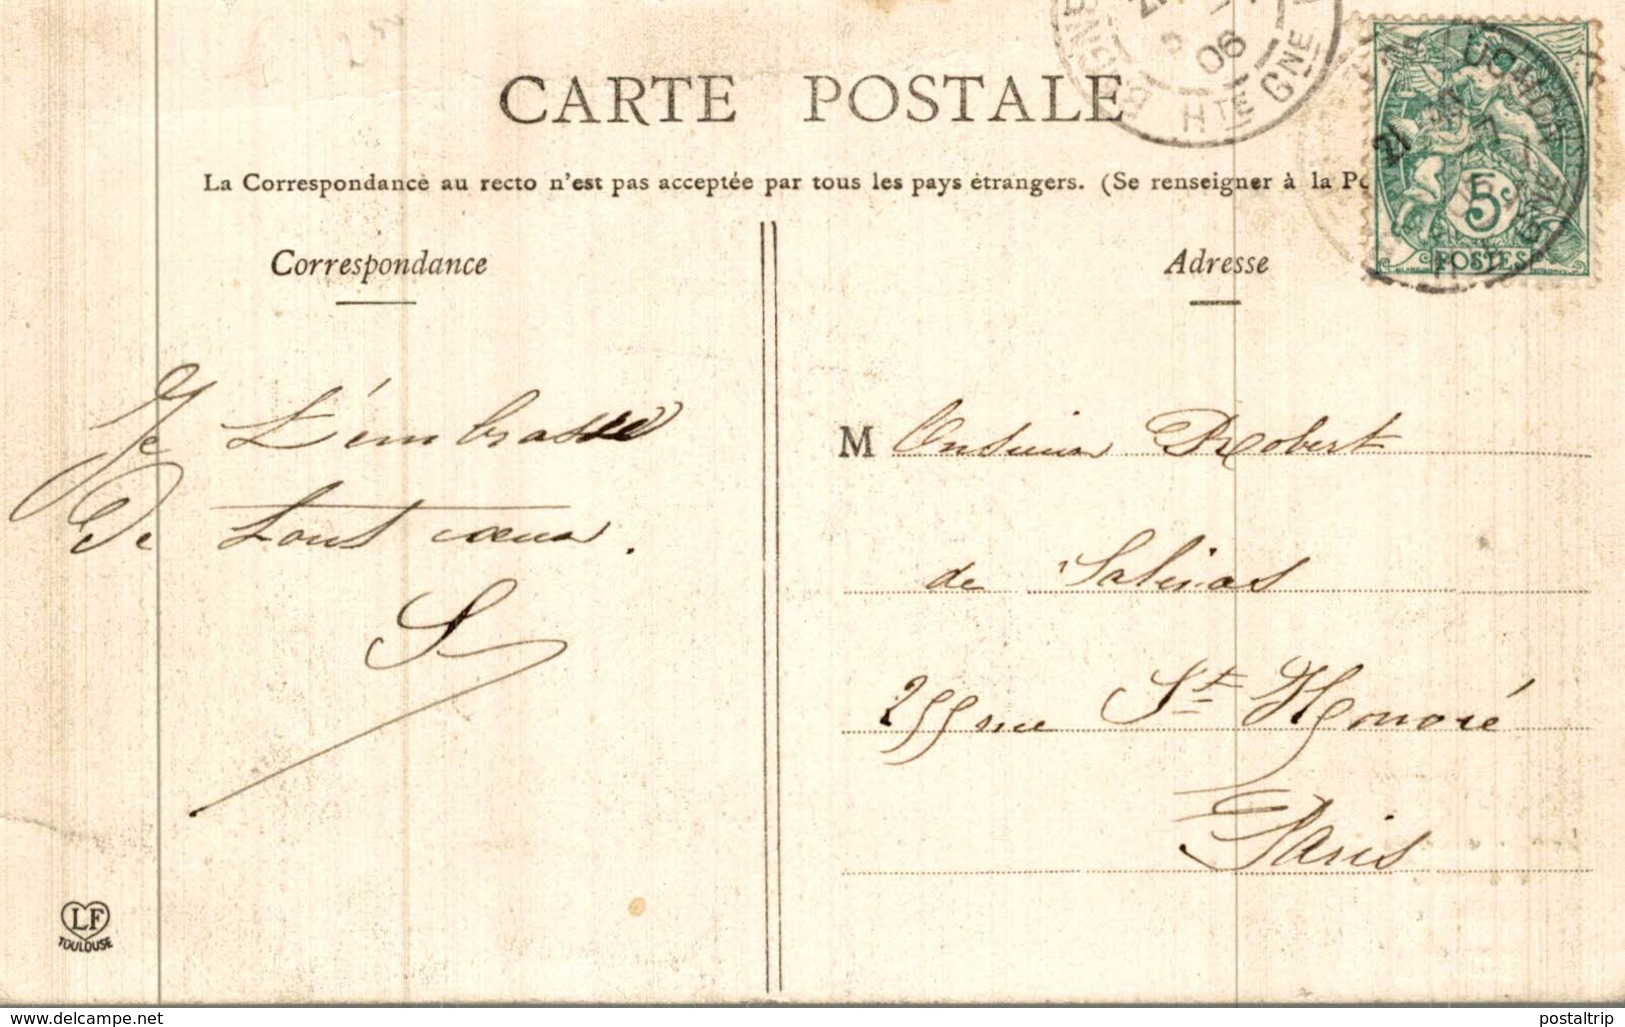 CARTE POSTALE
La Correspondance au recto n'est pas acceptée par tous les pays étrangers. (Se renseigner à la Po
Correspondance
Adresse
Je t'embrasse
de tout cœur.
S
M Onsieur Robert
de Salinas
255 rue St Honoré
Paris
06
Hte Gne
LUCHON
21
5c
POSTES
LF
TOULOUSE
www.delcampe.net
postaltrip